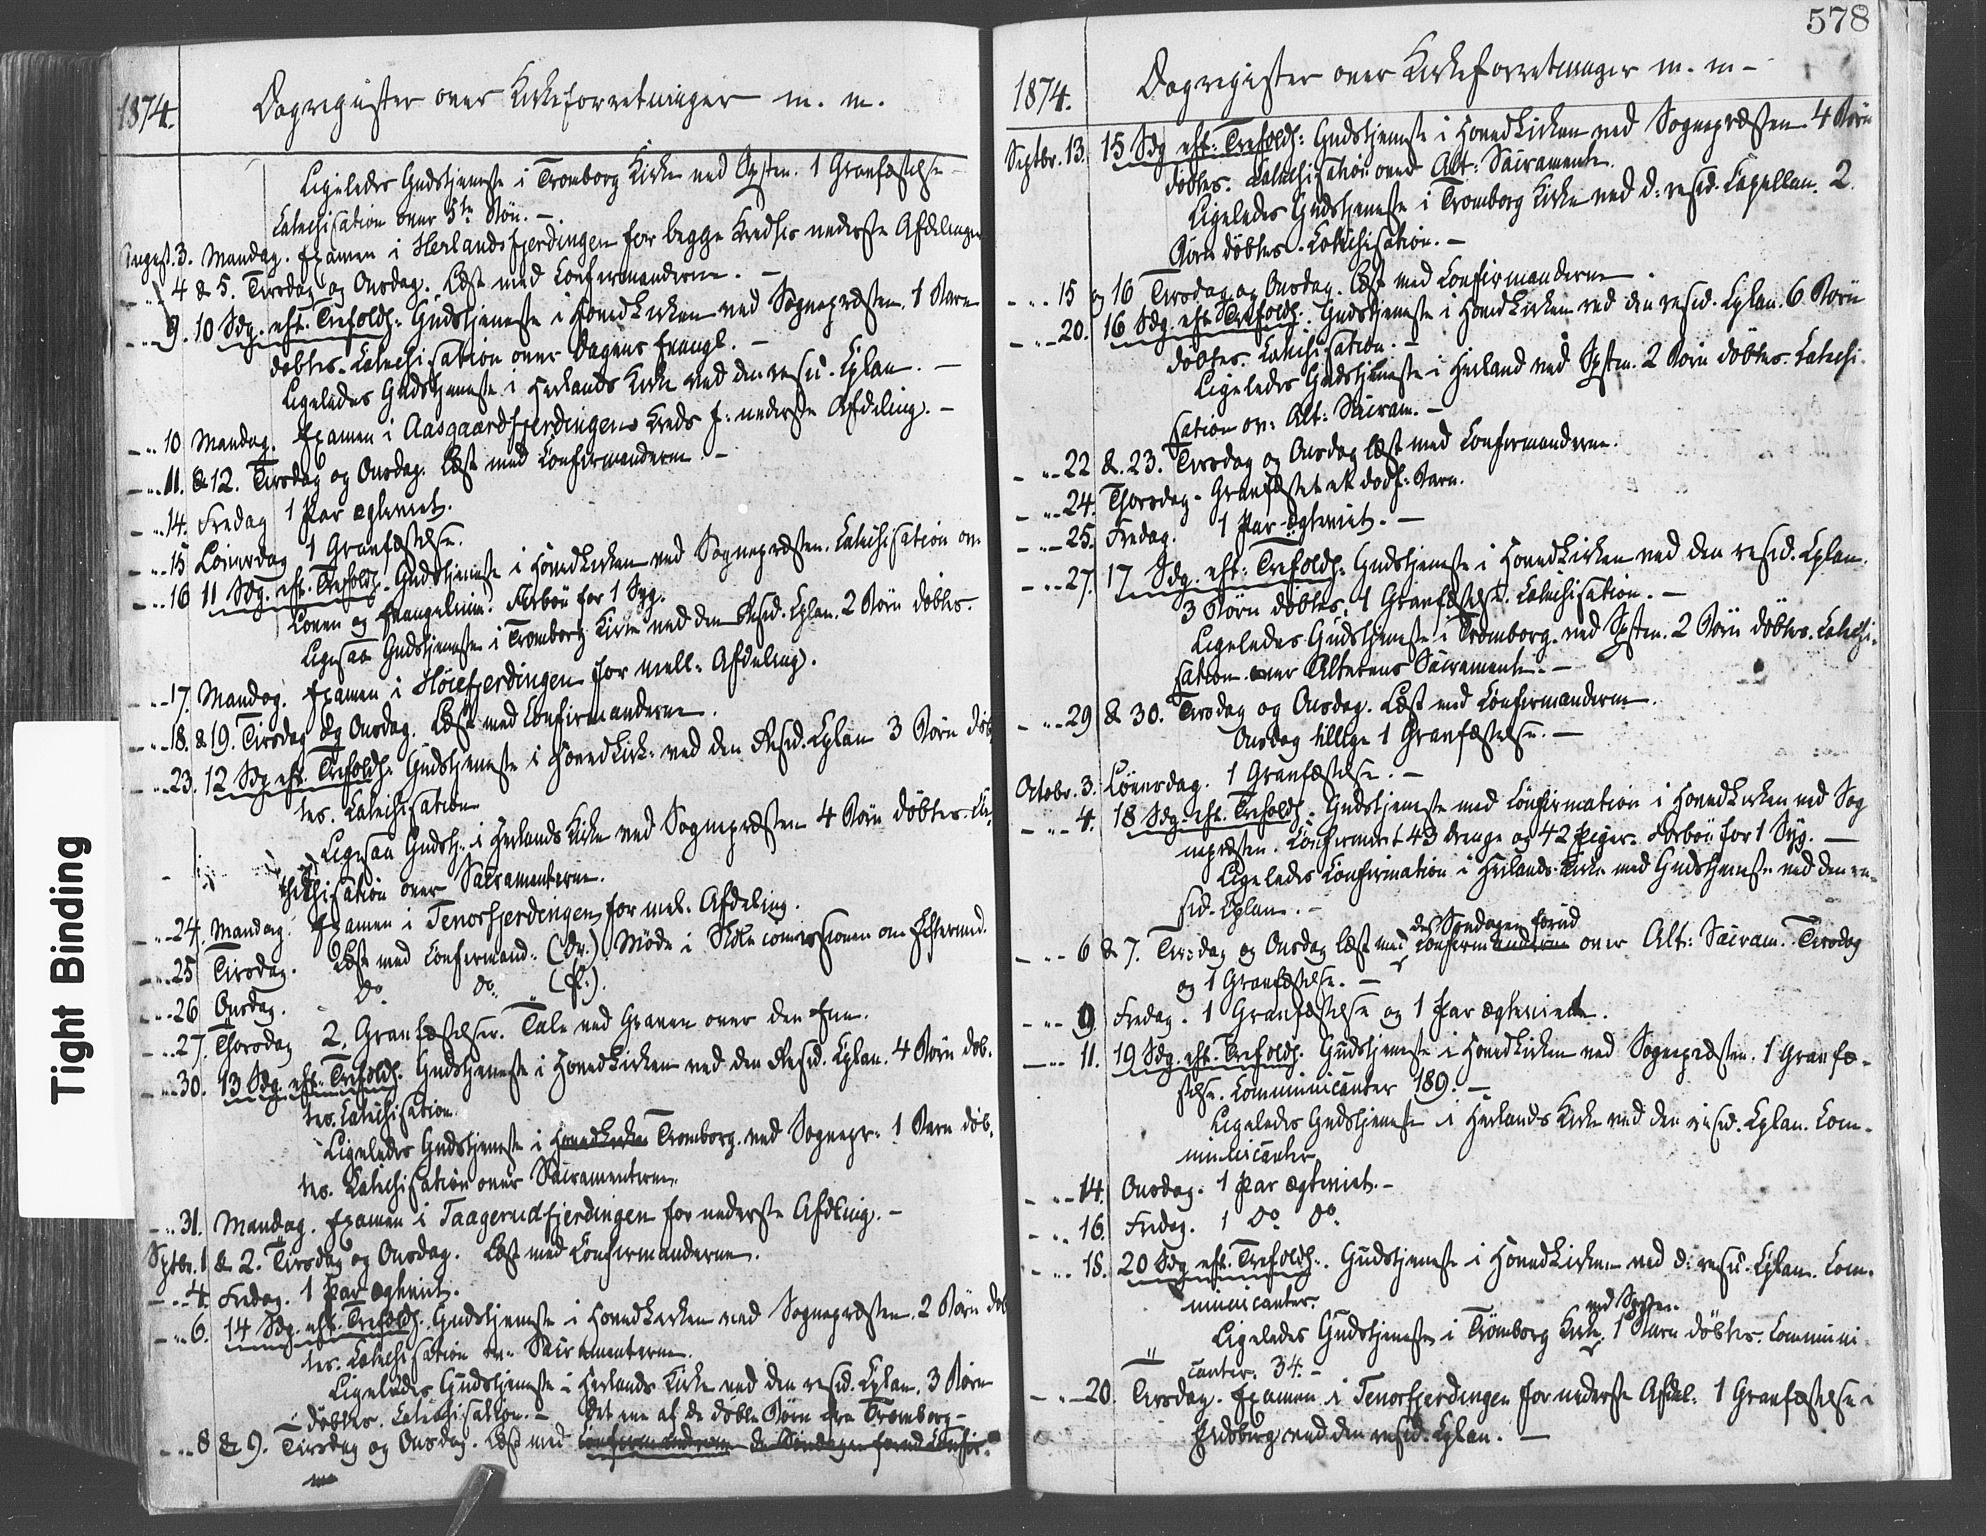 1874.
Dagregister over Kirkeforretninger m. m.
Ligeledes Gudstjeneste i Tromborg Kirke ved Spsten. 1 Gravfæstelse
Catechisation over 5te Bøn. –
August. 3. Mandag. Examen i Herlandsfjerdingen for begge Kredses nederste Afdelinger
– „ – 4 & 5. Tirsdag og Onsdag. Læst med Confirmanderne. –
– „ – 9. 10 Sdg. eft. Trefoldh: Gudstjeneste i Hovedkirken ved Sognepræsten. 1 Barn
døbtes. Catechisation over Dagens Evangl. –
Ligeledes Gudstjeneste i Herlands Kirke ved den resid. Cplan. –
– „ – 10 Mandag. Examen i Aasgaardfjerdingens Kreds f: nederste Afdeling. –
– „ – 11. & 12. Tirsdag og Onsdag. Læst med Confirmanderne. –
– „ – 14. Fredag 1 Par ægteviet.
– „ – 15 Løverdag 1 Gravfæstelse.
– „ – 16 11 Sdg. eft. Trefoldh. Gudstjeneste i Hovedkirken ved Sognepræsten. Catechisation ov.
Loven og Evangelium. Forbøn for 1 Syg.
Ligesaa Gudstjeneste i Tromborg Kirke ved den Resid. Cplan. 2 Børn døbtes.
– „ – 17. Mandag. Examen i Høiefjerdingen for mell: Afdeling.
– „ – 18. & 19. Tirsdag og Onsdag. Læst med Confirmanderne.
– „ – 23. 12 Sdg eft. Trefoldh. Gudstjeneste i Hovedkirk: ved den Resid. Cplan 3 Børn døb
tes. Catechisation
Ligesaa Gudstj. i Herlands Kirke ved Sognepræsten 4 Børn døbtes. Ca-
thechisation over Sacramenterne.
– „ – 24. Mandag. Examen i Tenorfjerdingen for mel. Afdeling.
– „ – 25 Tirsdag. Læst med Confirmand: (Dr.) Møde i Skolecomissionen om Eftermd.
– „ – 26 Onsdag. Do Do. (P:).
– „ – 27. Thorsdag 2 Gravfæstelser. Tale ved Graven over den Ene.
– „ – 30. 13 Sdg. eft. Trefoldh. Gudstjeneste i Hovedkirken ved den Resid. Cplan. 4 Børn døb.
tes. Catechisation.
Ligeledes Gudstjeneste i Hovedkirken Tromborg. ved Sognepr: 1 Barn døb.
tes. Catechisation over Sacramenterne.
– „ – 31. Mandag. Examen i Taagerudfjerdingen for nederste Afdling. –
Sptbr. 1 & 2. Tirsdag og Onsdag. Læst med Confirmanderne.
– „ – 4. Fredag. 1 Par ægteviet.
– „ – 6. 14 Sdg. eft. Trefoldh. Gudstjeneste i Hovedkirken ved Sognepræsten. 2 Børn døb
tes. Catechisation ov. Sacramenterne.
Ligeledes Gudstjeneste i Herlands Kirke ved den resid. Cplan. 3 Børn
døbtes. Catechisation. – Det ene af de døbte Børn fra Tromborg –
– „ – 8 & 9. Tirsdag og Onsdag. Læst med Confirmanderne de Søndagen forud Confir.
Tight Binding
578
1874.
Dagregister over Kirkeforretninger m. m –
Septbr. 13. 15 Sdg eft: Trefoldh: Gudstjeneste i Hovedkirken ved Sognepræsten. 4 Børn
døbtes. Catechisation over Alt: Sacramente.
Ligeledes Gudstjeneste i Tromborg Kirke ved d: resid. Capellan. 2
Børn døbtes. Catechisation. –
– „ – 15 og 16 Tirsdag og Onsdag. Læst med Confirmanderne.
– „ – 20. 16 Sdg. eft. Trefoldh: Gudstjeneste i Hovedkirken ved den resid. Cplan. 6 Børn
døbtes. Catechisation. –
Ligeledes Gudstjeneste i Herland ved Spsten. 2 Børn døbtes. Catechi-
sation ov: Alt: Sacram. –
– „ – 22 & 23. Tirsdag og Onsdag læst med Confirmanderne.
– „ – 24. Thorsdag. Gravfæstet et dødf: Barn.
– „ – 25. Fredag. 1 Par ægteviet. –
– „ – 27. 17 Sdg. eft: Trefoldh: Gudstjeneste i Hovedkirken ved den resid. Cplan.
3 Børn døbtes. 1 Gravfæstelse. Catechisation. –
Ligeledes Gudstjeneste i Tromborg ved Spsten. 2 Børn døbtes. Catechi-
sation over Alterens Sacramente. –
– „ – 29 & 30. Tirsdag og Onsdag. Læst med Confirmanderne.
Onsdag tillige 1 Gravfæstelse. –
Octobr. 3. Løverdag. 1 Gravfæstelse. –
– „ – 4. 18 Sdg. eft. Trefoldh: Gudstjeneste med Confirmation i Hovedkirken ved Sog
nepræsten. Confirmeret 43 Drenge og 42 Piger. Forbøn for 1 Syg. –
Ligeledes Confirmation i Herlands Kirke med Gudstjeneste ved den re-
sid. Cplan. –
de Søndagen forud
– „ – 6 & 7. Tirsdag og Onsdag læst med Confirmanderne over Alt: Sacram. Tirsdag
og 1 Gravfæstelse. –
– „ – 9 Fredag. 1 Gravfæstelse og 1 Par ægteviede.
– „ – 11. 19 Sdg. eft. Trefoldh. Gudstjeneste i Hovedkirken ved Sognepræsten. 1 Gravfæ-
stelse. Communicanter 189. –
Ligeledes Gudstjeneste i Herlands Kirke ved den resid. Cplan. Com-
municanter
– „ – 14. Onsdag. 1 Par ægteviet. –
– „ – 16. Fredag. 1 Do Do.
– „ – 18. 20 Sdg eft. Trefoldh: Gudstjeneste i Hovedkirken ved d: resid. Cplan. Com-
municanter.
ved Spsten.
Ligeledes Gudstjeneste i Tromborg Kirke. 1 Barn døbtes. Communi-
canter. 34. –
– „ – 20. Tirsdag. Examen i Tenorfjerdingen for nederste Afdel. 1 Gravfæstelse i
Eidsberg ved den resid. Cplan. –